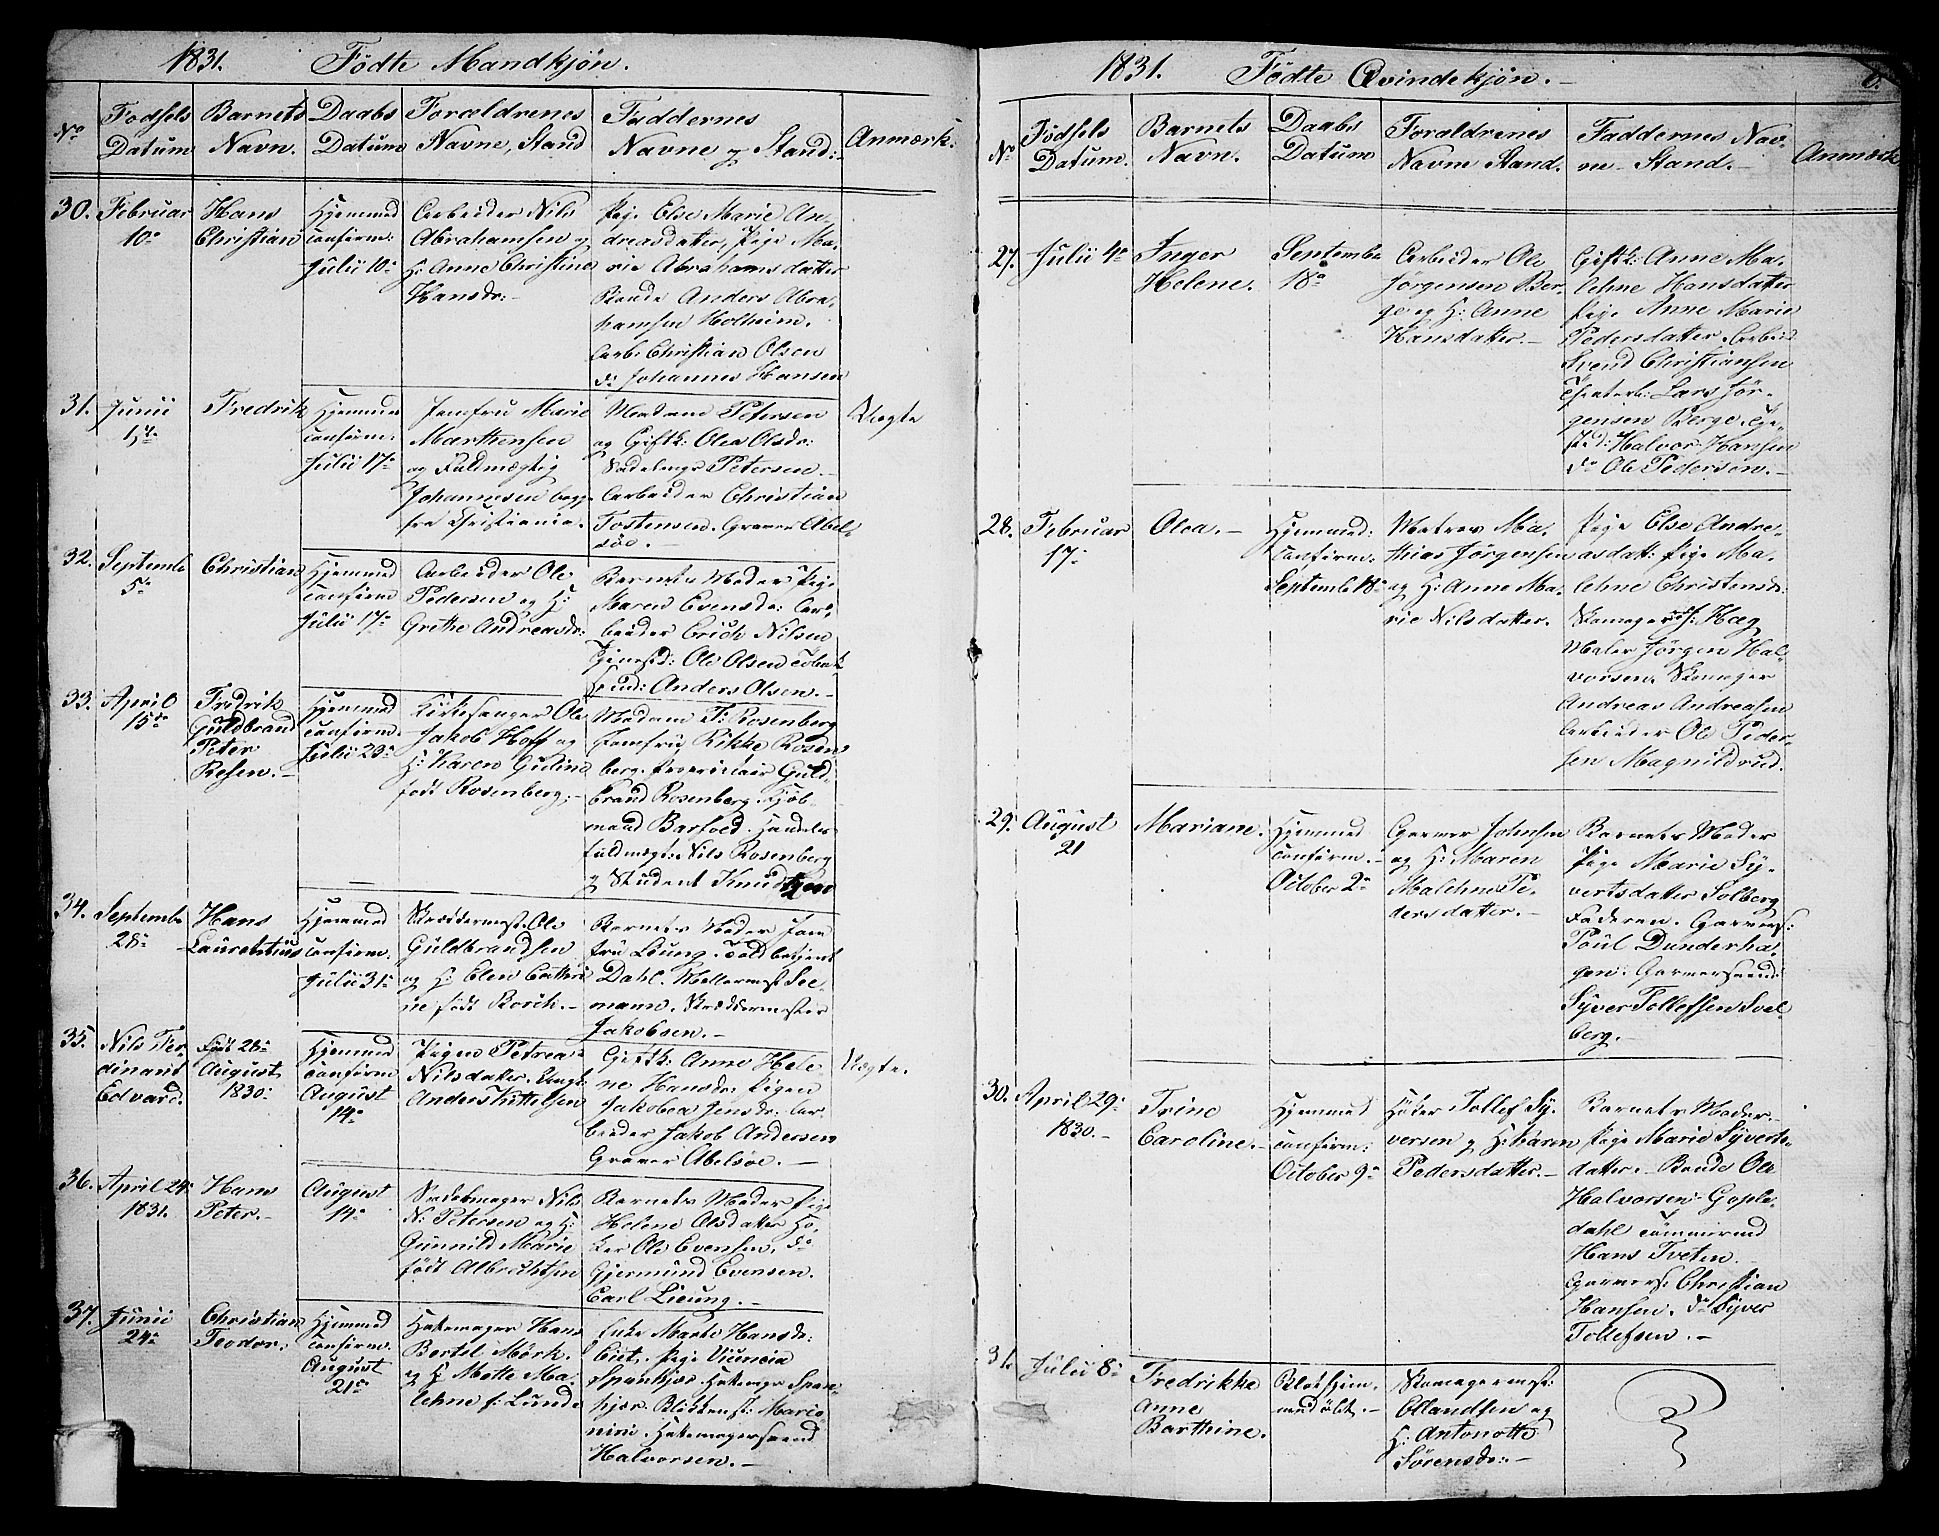 1831. Födte Mandkjön.
No
Födsels Datum
Barnets Navn.
Daabs Datum
Forældrenes Navne, Stand
Faddernes Navne og Stand:
Anmærk:
30.
Februar
10de
Hans
Christian
Hjemmed
confirm:
Julii 10de
Arbeider Nils
Abrahamsen og
H: Anne Christine
Hansdr:
Pige Else Marie An-
dreasdatter, Pige Ma-
rie Abrahamsdatter
Bonde Anders Abra-
hamsen Holheim.
Arb: Christian Olsen
do Johannes Hansen
31.
Junii
Fredrik
Hjemmed
confirm:
Julii 17de
Jomfru Marie
Marthensen
og Fuldmægtig
Johannesen begge
fra Christiania.
Madame Petersen
og Giftk: Olea Olsdr:
Sadelmgr Petersen.
Arbeider Christian
Tostensen. Graver Abel-
söe.
Uægte
32.
Septembr
5te
Christian
Hjemmed
confirm
Julii 17de
Arbeider Ole
Pedersen og H:
Grethe Andreasdr:
Barnets Moder Pige
Maren Evensdr: Ar-
beider Erich Nilsen
Ole Olsen
Anders Olsen.
33.
April
15de
Fredrik
Guldbrand
Peter
Resen.
Hjemmed
confirm.
Kirkesanger Ole
Jakob Hoff og
H: Karen Guline
födt Rosenberg.
Madam F: Rosenberg
Jomfru Rikke Rosen-
berg. Proprietair Guld-
brand Rosenberg. Kjöb-
mand Barfoed. Handels
fuldmægt: Nils Rosenberg
og Student Knudtzen
34.
Septembr
28de
Hans
Laurentius
Hjemmed
confirm.
Julii 31te
Skreddermest. Ole
Guldbrandsen
og H: Elen Cathri
ne födt Borch.
Barnets Moder Jom
fru Lieung. Toldbetjent
Dahl. Møllermest See-
mann. Skreddermester
Jakobsen.
35.
Nils Fer-
dinant
Edvard.
Födt 28de
August
1830
Hjemmed
confirm
August
14de
Pigen Petrea
Nilsdatter. Ungk:
Anders Kittelsen
Giftk: Anne Hele
ne Hansdr: Pigen
Jakobea Jensdr: Ar-
beider Jakob Andersen
Graver Abelsöe.
Uægte.
36.
April 24de
1831.
Hans
Peter.
August
14de
Sadelmager Nils
N: Petersen og H:
Gunnild Marie
födt Albrechtsen
Barnets Moder Pige
Helene Olsdatter Hö-
ker Ole Evensen, do
Gjermund Evensen.
Carl Lieung.
37.
Junii
24de
Christian
Teodor.
Hjemmed
confirm.
August
21de
Hattemager Hans
Bertel Mörk.
og H: Mette Ma-
lehne f: Lunde
Enke Marte Hansdr:
Spankjær. Hattemager Span-
kjær.
Hattemagersvend
Halvorsen.
1831. Födte Qvindekjön.
No
Födsels Datum.
Barnets Navn.
Daabs Datum
Forældrenes Navne Stand.
Faddernes Nav-
ne Stand.
Anmærk
27.
Julii 4de
Inger
Helene.
Septembr
18de
Arbeider Ole
Jörgensen Ber-
ge og H: Anne
Hansdatter.
Giftk: Anne Ma-
lehne Hansdatter
Pige Anne Marie
Pedersdatter. Arbeid
Svend Christiansen
Lars Jör-
gensen Berge.
Halvor Hansen
do Ole Pedersen.
28.
Februar
17de
Olea.
Hjemmed:
confirm:
Septembr 18de
Matros Ma-
thias Jörgensen
og H: Anne Ma-
rie Nilsdatter.
Pige Else Andre-
asdatt: Pige Ma-
lehne Christensdr.
Skomager Hæg
Maler Jörgen Hal-
vorsen. Skomager
Andreas Andreasen
Arbeider Ole Peder-
sen Magnildrud.
29.
August
21
Mariane.
Hjemmed
confirm.
October 2de
Garver Johnsen
og H: Maren
Malehne Pe-
dersdatter.
Barnets Moder
Pige Marie Sy-
vertsdatter Solberg
Faderen. Garvers:
Poul Dunderha-
gen. Garversvend
Syver Tollefsen Svel-
berg.
30.
April 29de
1830.
Trine
Caroline.
Hjemmed
confirm:
October 9de
Höker Tollef Sy-
versen og H: Karen
Pedersdatter.
Barnets Moder
Pige Marie Syverts-
datter. Bonde Ole
Halvorsen Gople-
dahl Tömmermd
Hans Tveten.
Garvers: Christian
Hansen. do Syver
Tollefsen.
31.
Julii 8de
Fredrikke
Anne
Barthine.
Blot hjem-
medöbt.
Skomagermest:
Ellandsen og
H: Antonette
Sörensdr: